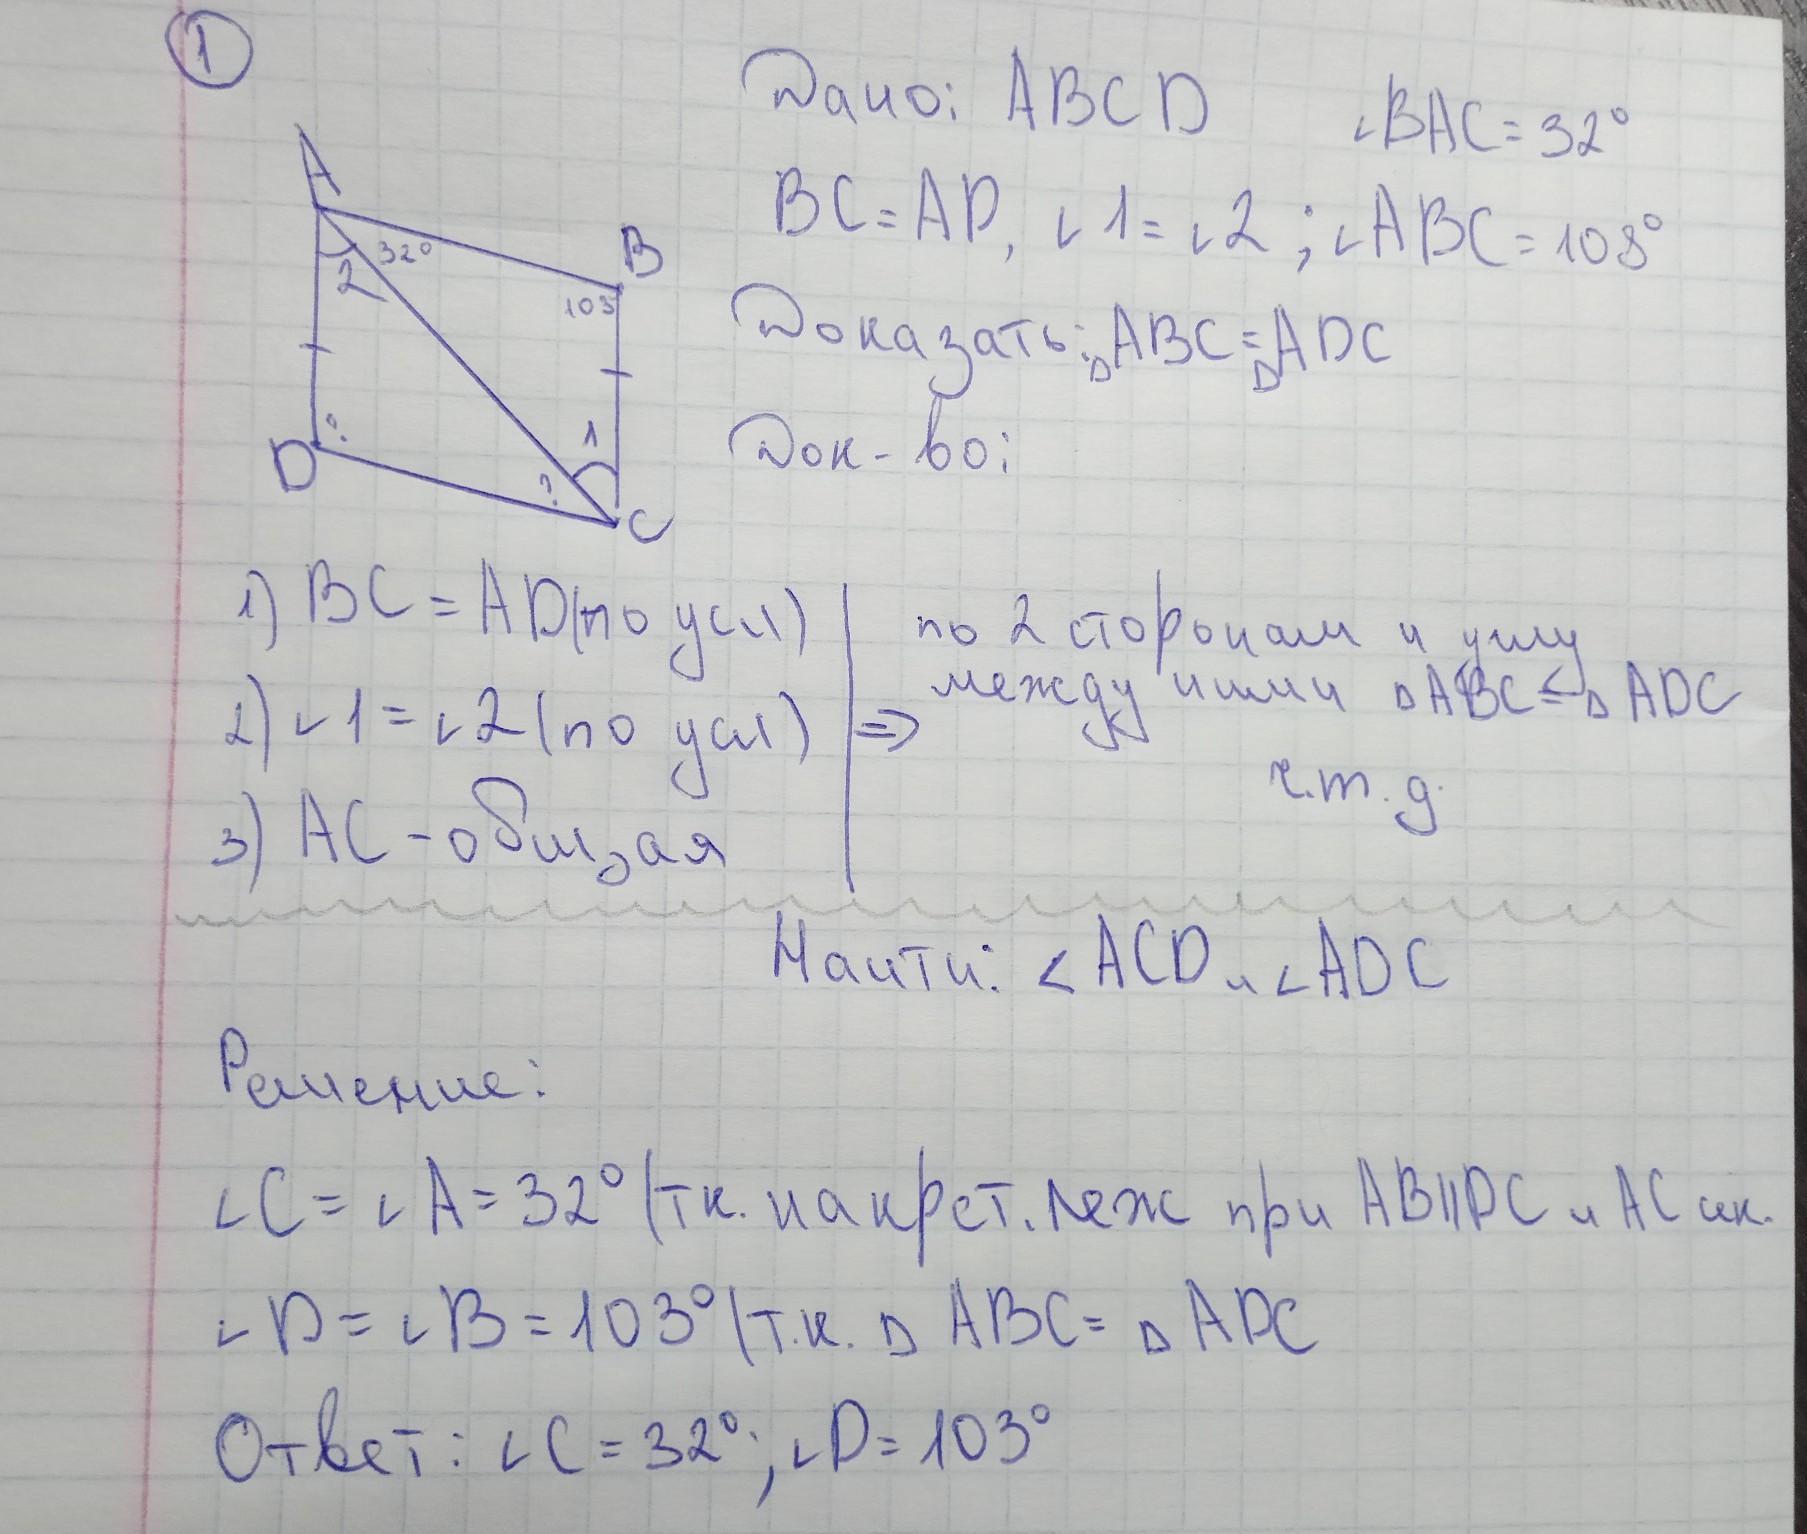 1
Дано: ABCD ∠BAC = 32°
BC = AD, ∠1 = ∠2 ; ∠ABC = 103°
Доказать: △ABC = △ADC
Док-во:
A
B
D
C
2
32°
103
1
?
?
1) BC = AD (по усл)
2) ∠1 = ∠2 (по усл)
3) AC - общая
⇒
по 2 сторонам и углу
между ними △ABC = △ADC
ч.т.д.
Наити: ∠ACD и ∠ADC
Решение:
∠C = ∠A = 32° (т.к. накрест. леж при AB||DC и AC сек.
∠D = ∠B = 103° (т.к. △ ABC = △ ADC
Ответ: ∠C = 32°; ∠D = 103°